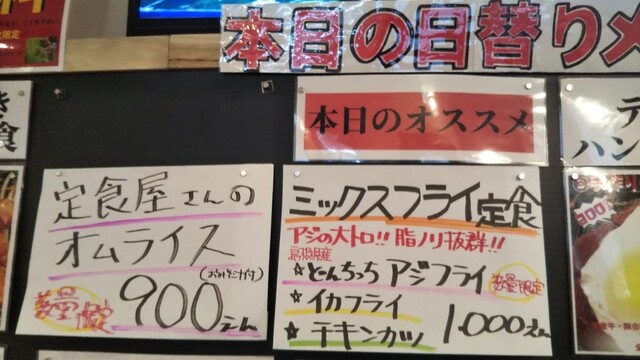 本日の日替りメ
本日のオススメ
定食屋さんの
オムライス
(おみそ汁付)
数量限定
900えん
ミックスフライ定食
アジの大トロ!!脂ノリ抜群!!
島根県産
☆どんちっち アジフライ
数量限定
☆イカフライ
☆チキンカツ
1,000えん
デ
ハン
食
300